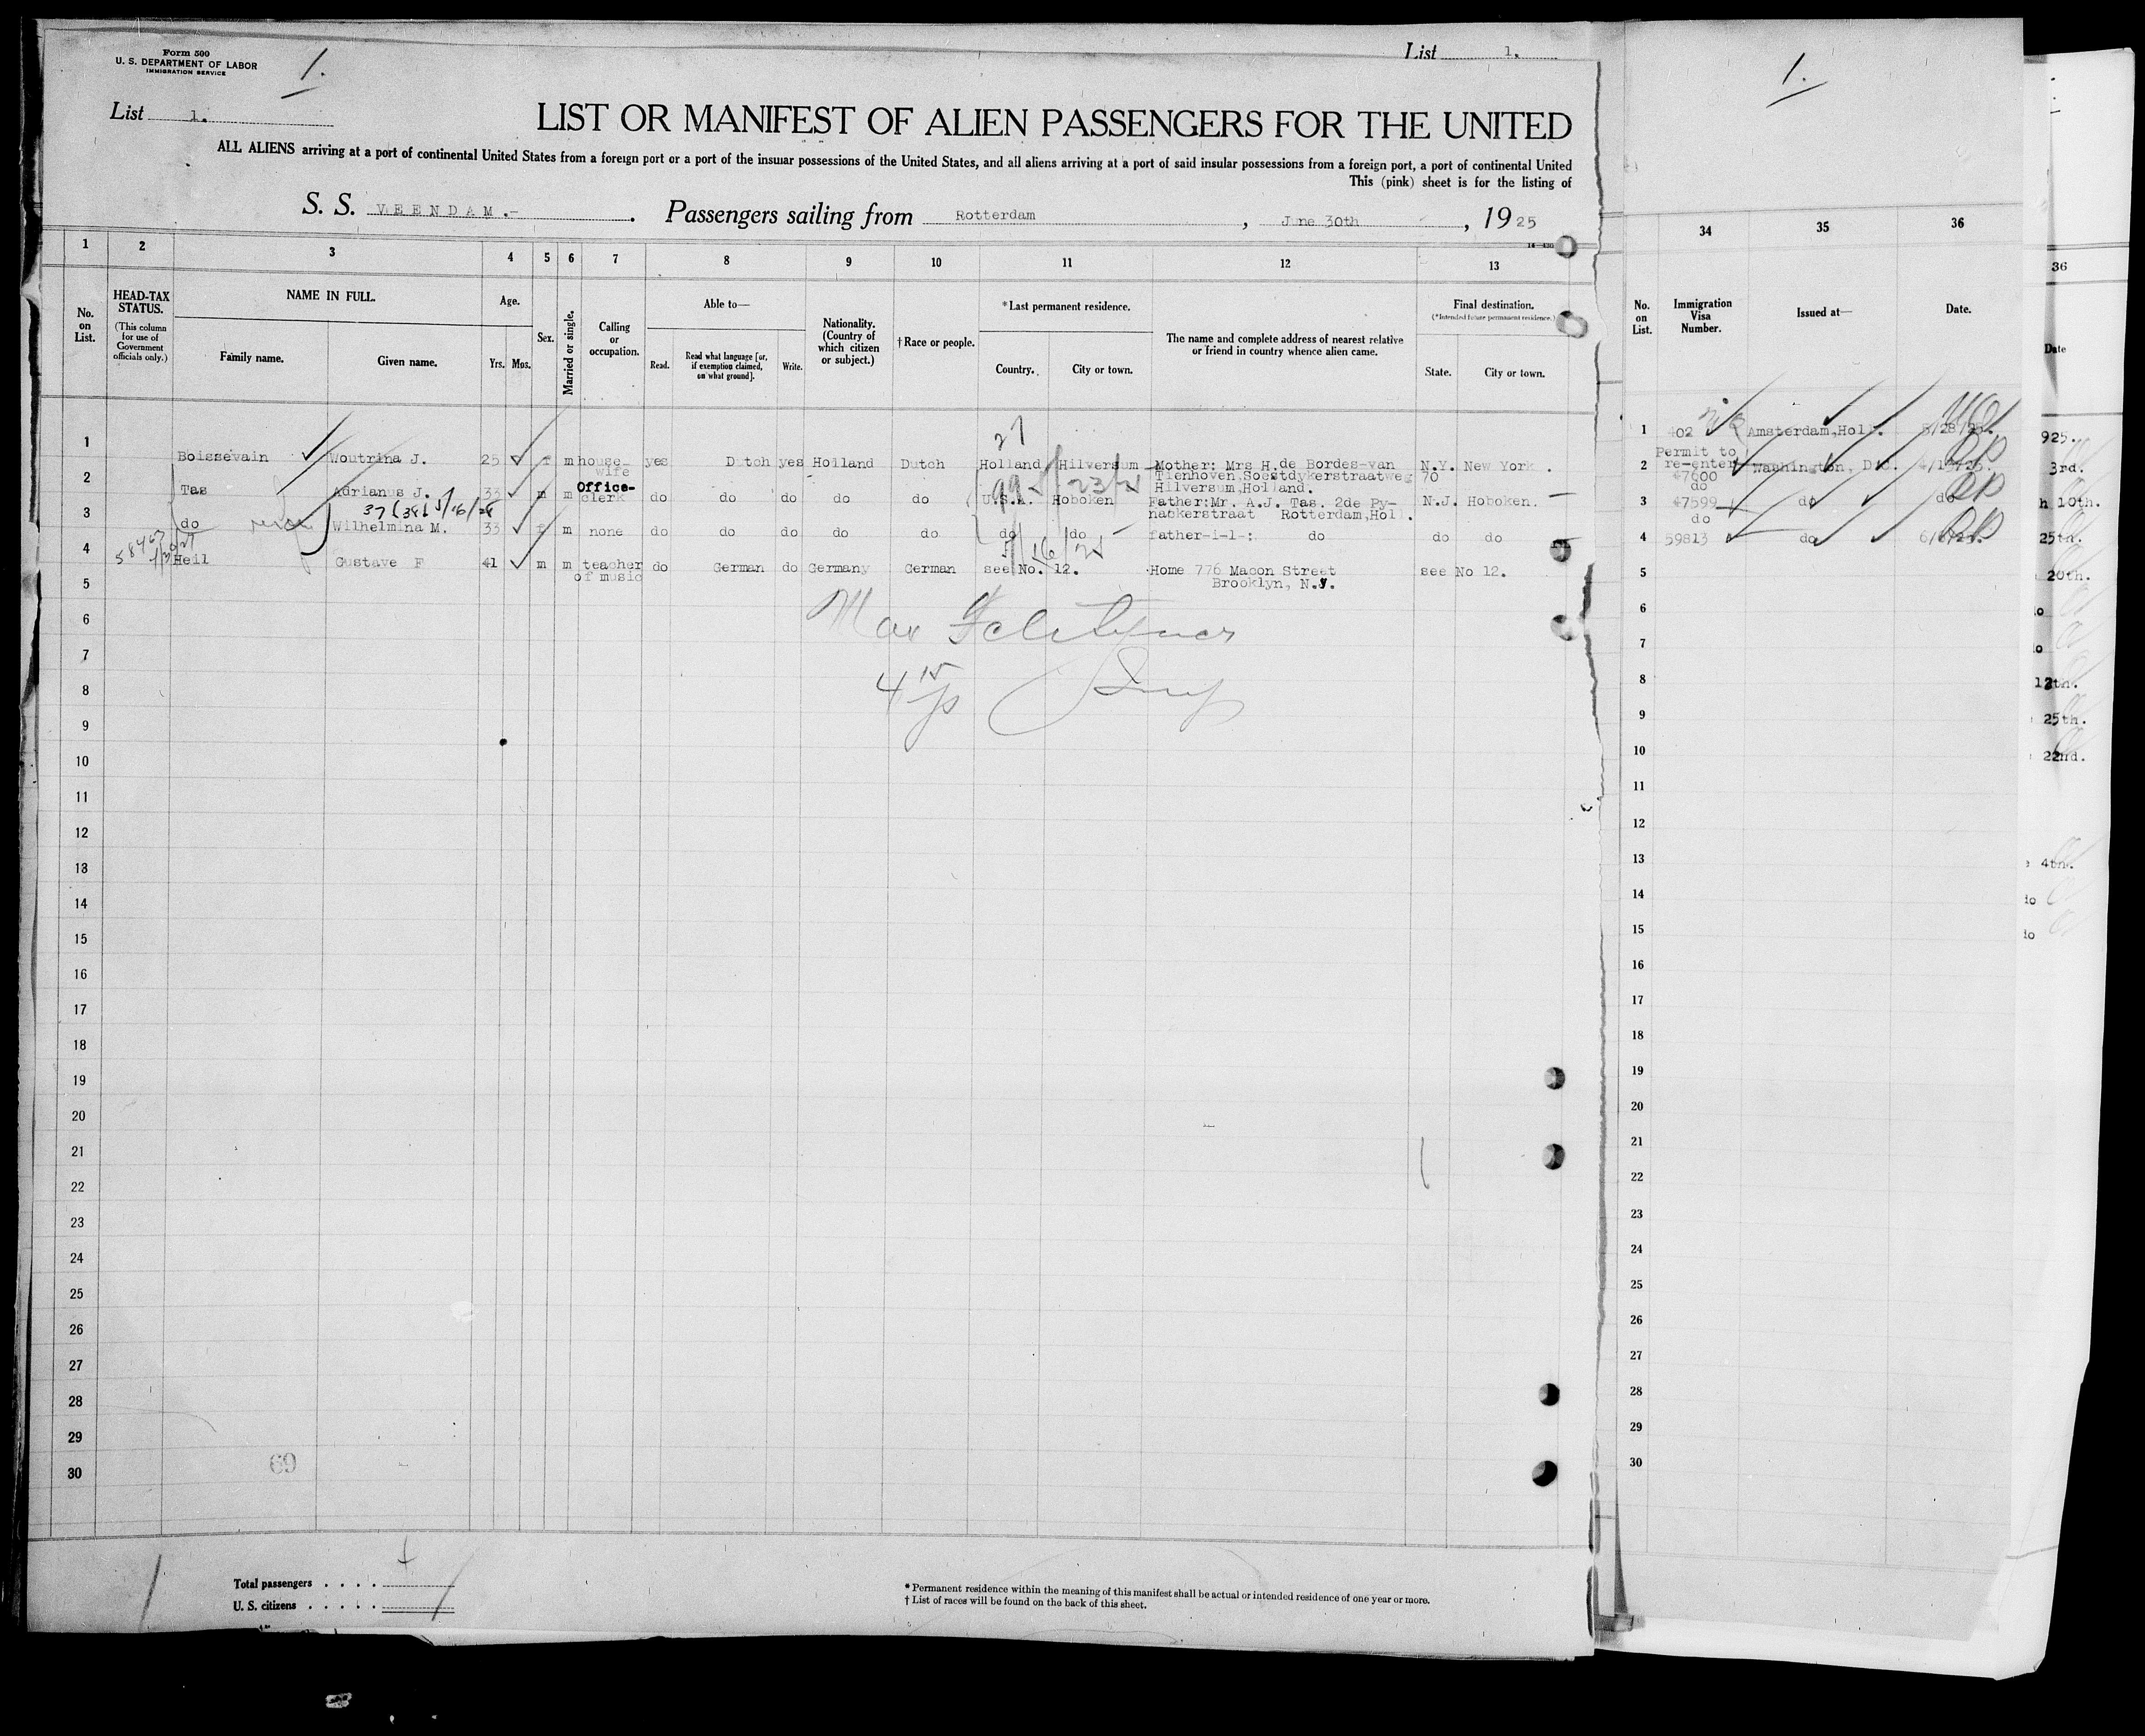 Form 500
U. S. DEPARTMENT OF LABOR
IMMIGRATION SERVICE
1.
List 1.
List 1.
LIST OR MANIFEST OF ALIEN PASSENGERS FOR THE UNITED
ALL ALIENS arriving at a port of continental United States from a foreign port or a port of the insular possessions of the United States, and all aliens arriving at a port of said insular possessions from a foreign port, a port of continental United
This (pink) sheet is for the listing of
S. S. VEENDAM.- . Passengers sailing from Rotterdam , June 30th , 1925
1 2 3 4 5 6 7 8 9 10 11 12 13
No. on List.
HEAD-TAX STATUS.
(This column for use of Government officials only.)
NAME IN FULL.
Family name. Given name.
Age.
Yrs. Mos.
Sex.
Married or single.
Calling or occupation.
Able to—
Read. Read what language [or, if exemption claimed, on what ground]. Write.
Nationality. (Country of which citizen or subject.)
†Race or people.
*Last permanent residence.
Country. City or town.
The name and complete address of nearest relative or friend in country whence alien came.
Final destination.
(*Intended future permanent residence.)
State. City or town.
1 Boissevain Woutrina J. 25 f m house-wife yes Dutch yes Holland Dutch Holland Hilversum Mother: Mrs H.de Bordes-van Tienhoven,Soestdykerstraatweg 70 Hilversum,Holland. N.Y. New York.
2 Tas Adrianus J. 33 m m Office-clerk do do do do do U.S.A. Hoboken Father:Mr. A.J. Tas. 2de Py-nackerstraat Rotterdam,Holl. N.J. Hoboken.
3 do Wilhelmina M. 33 f m none do do do do do do do father-i-l-: do do do
4 Heil Gustave F 41 m m teacher of music do German do Germany German see No. 12. Home 776 Macon Street Brooklyn, N.Y. see No 12.
5
6
7
8
9
10
11
12
13
14
15
16
17
18
19
20
21
22
23
24
25
26
27
28
29
30
69
Total passengers . . . .
U. S. citizens . . . . .
* Permanent residence within the meaning of this manifest shall be actual or intended residence of one year or more.
† List of races will be found on the back of this sheet.
1.
34 35 36
No. on List.
Immigration Visa Number.
Issued at—
Date.
1 402 Amsterdam,Holl. 5/28/25.
2 Permit to re-enter 47600 Washington, D.C.
3 do 47599 do do
4 do 59813 do
5
6
7
8
9
10
11
12
13
14
15
16
17
18
19
20
21
22
23
24
25
26
27
28
29
30
36
Date
925.
3rd.
h 10th.
25th.
20th.
12th.
25th.
22nd.
4th.
do
do